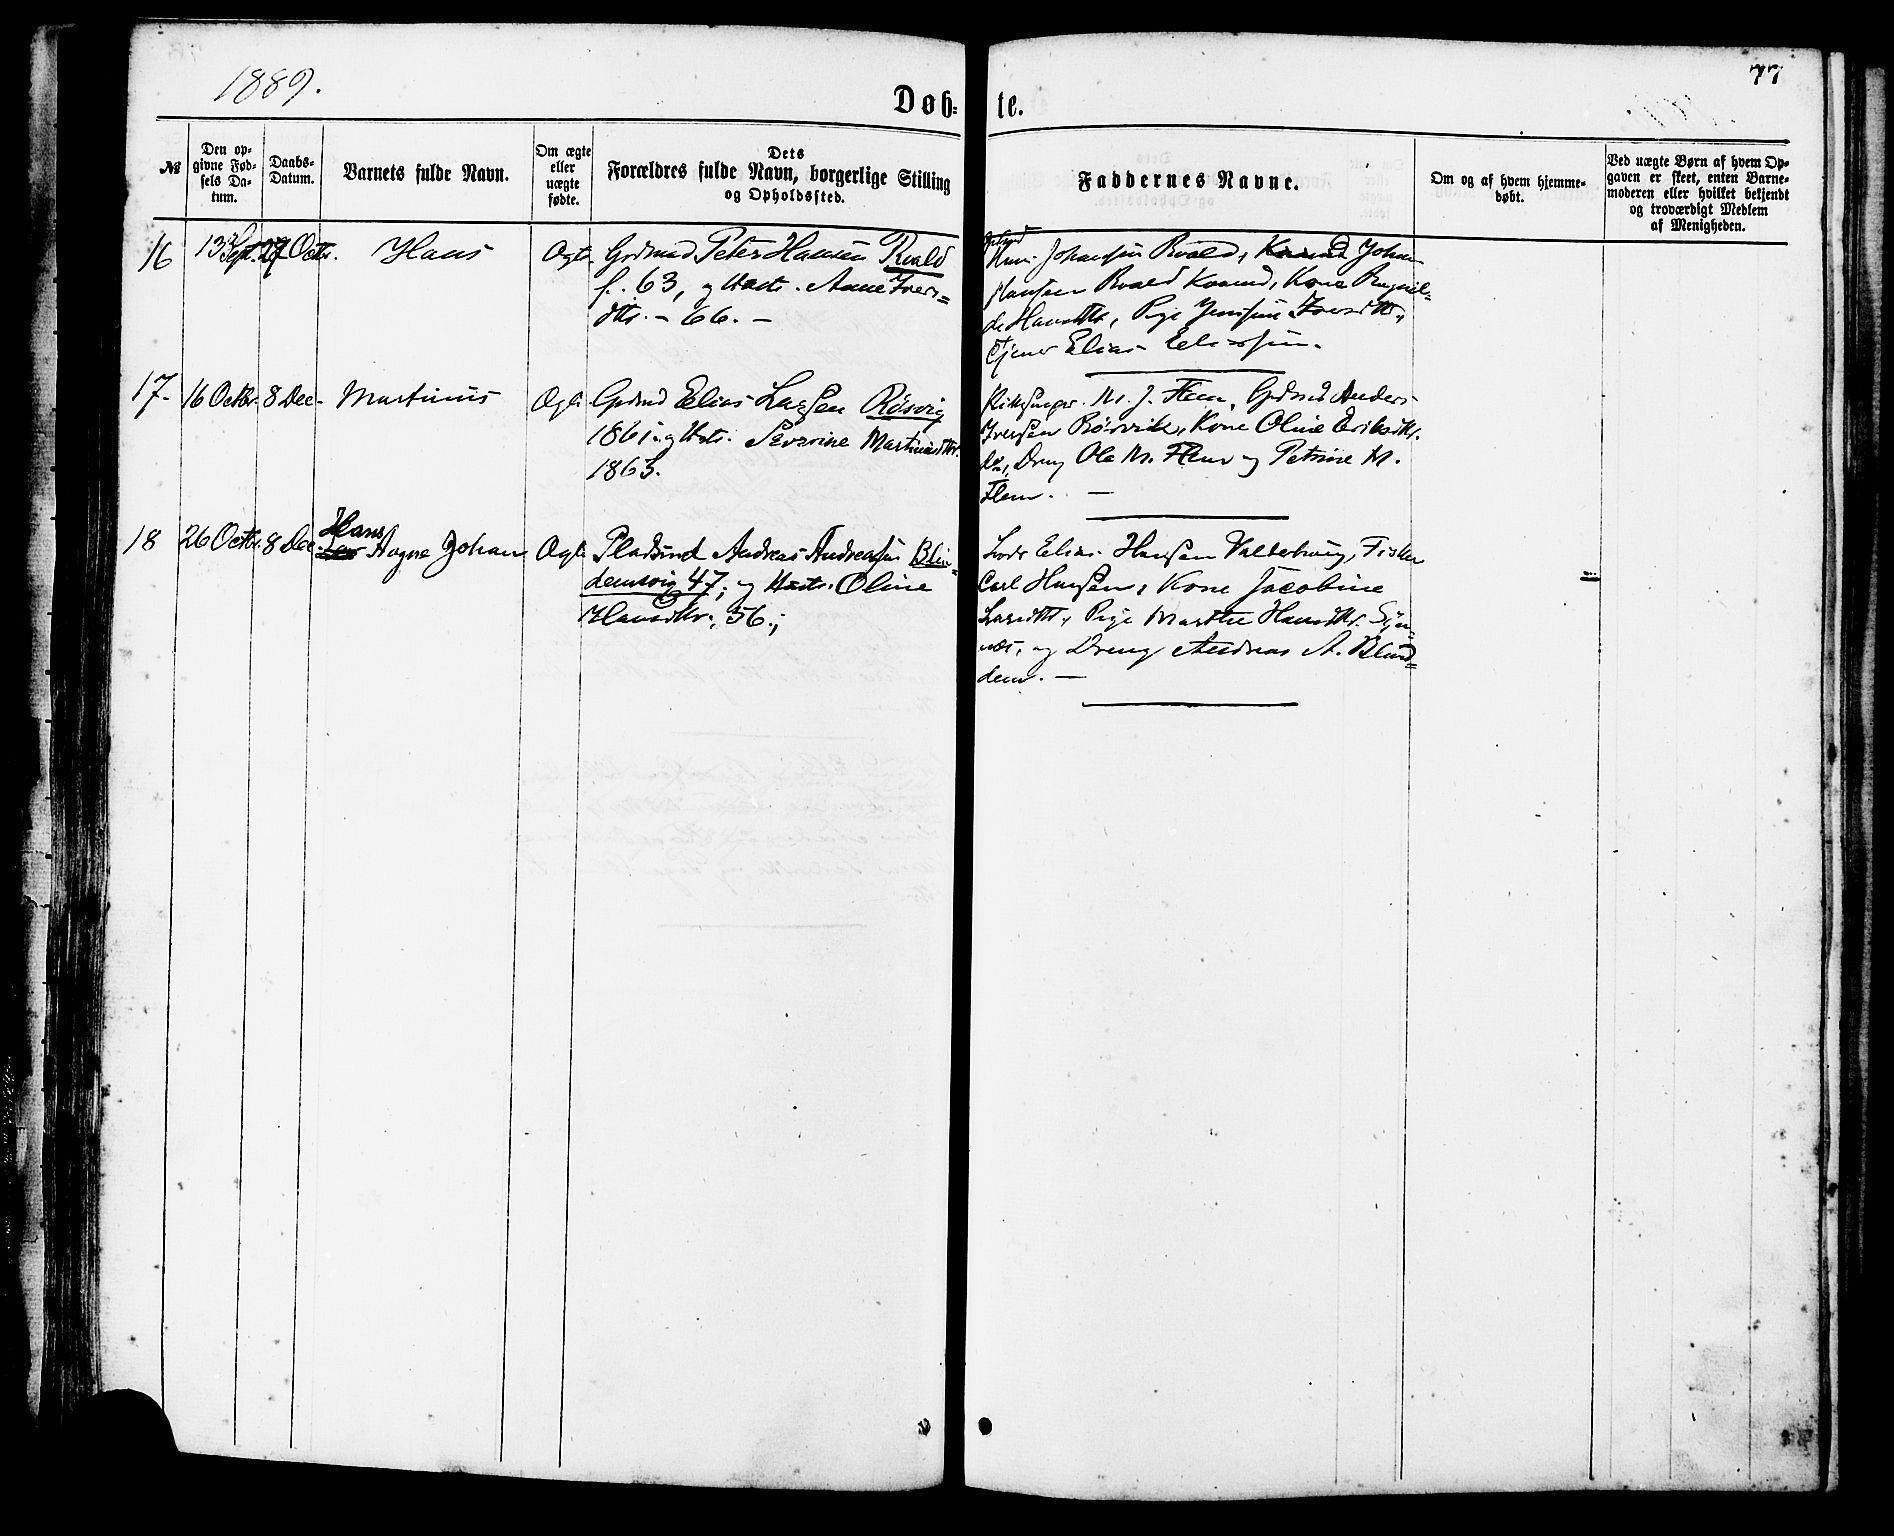 1889.
77
Døb-
te.
№
Den op-
givne Fød-
sels Da-
tum.
Daabs-
Datum.
Barnets fulde Navn.
Om ægte
eller
uægte
fødte.
Dets
Forældres fulde Navn, borgerlige Stilling
og Opholdssted.
Faddernes Navne.
Om og af hvem hjemme-
døbt.
Ved uægte Børn af hvem Op-
gaven er skeet, enten Barne-
moderen eller hvilket bekjendt
og troværdigt Medlem
af Menigheden.
16
13 Sept.
27 Octbr.
Hans
Ægte
Grdmd Peter Hansen Roald
f. 63, og Hustr. Anne Ivers=
dtr. - 66. -
Johansen Roald, Johan
Hansen Roald Kaarud, Kone Ragnil=
de Hansdttr, Pige Iversdttr,
Tjener Elias
17-
16 Octbr.
8 Dec.
Martinus
Ægte
Grdmd Elias Larsen Rösvig
1861 og Hustr. Severine Martinusdttr.
1863.
Kirksanger M. J. Flem, Grdmd Anders
Iversen Rösvik, Kone Oline Eriksdttr.
do, Dreng Ole M. Flem og Petrine M.
Flem. -
18
26 Octbr.
8 Dec.
Hans
Aagne Johan
Ægte
Pladsmd Andreas Andreassen Blin=
demsvig 47; og Hustr. Oline
Hansdttr., 56.;
Lods Elias Hansen Valdehaug, Fisker
Carl Hansen, Kone Jacobine
Larsdttr, Pige Marthe Hansdttr.
og Dreng Andreas A. Blind=
dem. -